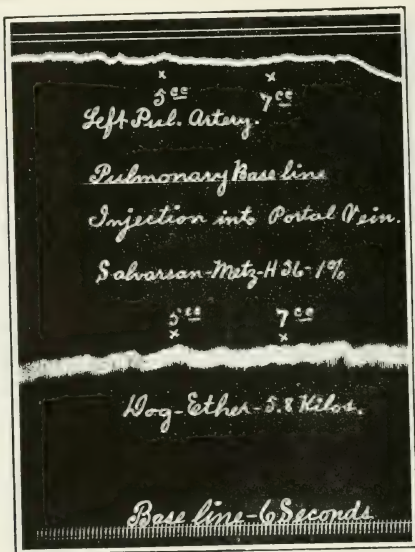 5 cc 7 cc
x x
Left Pul. Artery.
Pulmonary Base line
Injection into Portal Vein.
Salvarsan-Metz-H36-1%
5 cc 7 cc
x x
Dog-Ether-5.8 Kilos.
Base line-6 Seconds